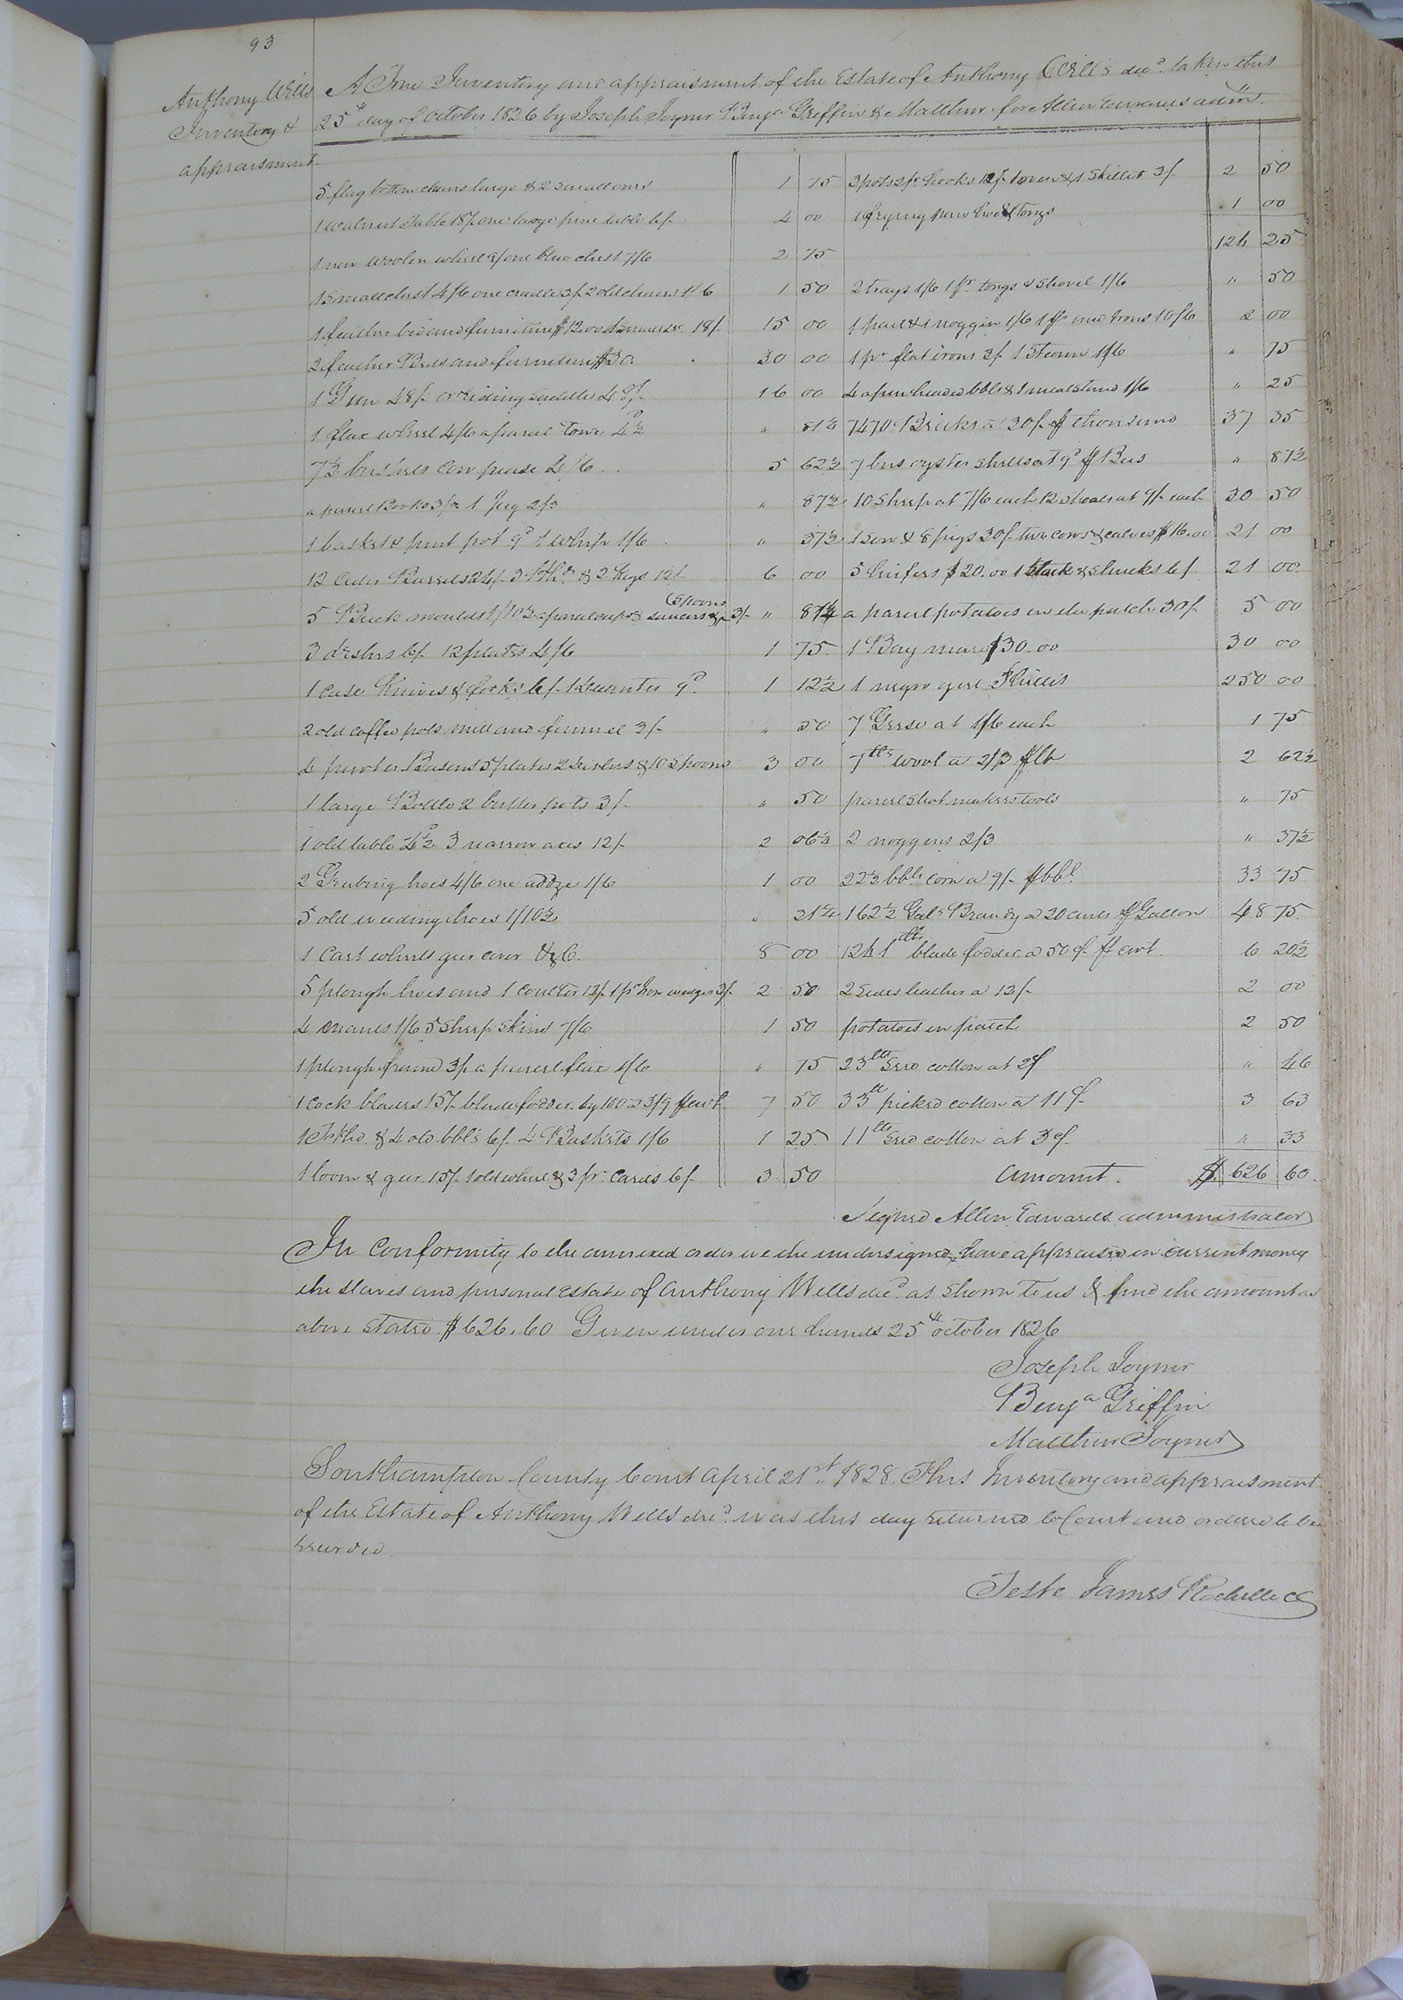 93
Anthony Wells
Inventory &
appraisment
A True Inventory and appraisment of the Estate of Anthony Wells decd. taken this
25th day of October 1826 by Joseph Joyner Benja Griffin & Matthew for Allen Edwards adm
5 flag bottom chairs large & 2 small ones 1 75
1 walnut Table 18/ one large pine table 6/ 4 00
1 new woolen wheel 9/ one blue chest 7/6 2 75
1 Small chest 4/6 one cradle 3/ 2 old chairs 1/6 1 50
1 feather bed and furniture $12.00 18/ 15 00
2 feather Beds and furniture $30 30 00
1 Gun 48/ riding saddle 16 00
1 flax wheel 4/6 a parcel Tow 4½ " 81¼
7½ bushels Cow pease 4/6 5 62½
a parcel Books 3/ 1 Jug 2/3 " 87½
1 basket & pint pot 9d 1 whip 1/6 " 37½
12 Cider Barrels 24/ 3 Hhds & 2 Kegs 12/ 6 00
Spoons
5 Brick moulds 1/10½ a parcel cups & saucers & 3/ " 87¼
3 dishes 6/ 12 plates 4/6 1 75
1 case Knives & forks 6/ 1 Decanter 9d. 1 12½
2 old coffee pots mill and funnel 3/ " 50
4 pewter Basons 5 plates 2 & 10 Spoons 3 00
1 large Bottle 2 butter pots 3/ " 50
1 old table 4½d 3 narrow axes 12/ 2 06¼
2 Grubing hoes 4/6 one addze 1/6 1 00
5 old weeding hoes 1/10½ " 31¼
1 Cart wheels gear cover &C. 8 00
5 plough hoes and 1 coulter 12/ 1 pr Iron wedges 3/ 2 50
4 1/6 5 Sheep Skins 7/6 1 50
1 plough frame 3/ a parcel flax 1/6 " 75
1 Cock blades 15/ blade fodder by 100 a 3/9 pr cwt 7 50
1 & 4 old bbls 6/ 4 Baskets 1/6 1 25
1 loom & gear 15/ 1 old wheel & 3 pr. Cards 6/ 3 50
3 pots 2 pr hooks 12/ 1 oven & 1 Skillet 3/ 2 50
1 frying pan hoe & tongs 1 00
126 25
2 trays 1/6 1 pr tongs & Shovel 1/6 " 50
1 pail & 1 noggin 1/6 1 pr and Irons 10/6 2 00
1 pr. flat irons 3/ 1 1/6 " 75
4 open headed bbls & 1 meal stand 1/6 " 25
7470 Bricks a 30/ pr thousand 37 35
7 bus oyster Shells at 9d pr Bus " 87½
10 Sheep at 7/6 each 12 Shoats at 9/ each 30 50
1 sow & 8 pigs 30/ two cows & calves $16.00 21 00
5 heifers $20.00 1 Stack & Shucks 6/ 21 00
a parcel potatoes in the patch 30/ 5 00
1 Bay mare $30.00 30 00
1 negro girl Phillis 250 00
7 Geese at 1/6 each 1 75
7 lbs wool a 2/3 pr lb 2 62½
parcel Shoe makers tools " 75
2 noggins 2/3 " 37½
22½ bbls Corn a 9/ pr bbl. 33 75
162½ Gals Brandy a 30 cents pr Gallon 48 75
1241 lbs blade fodder a 50c/ pr cwt. 6 20½
2 Sides leather a 12/ 2 00
potatoes in patch 2 50
23 lbs Seed cotton at 2c/ " 46
33 lb picked cotton a 11c/ 3 63
11 lbs Seed cotton at 3c/ " 33
Amount. $ 626 60
Signed Allen Edwards administrator
In Conformity to the annexed order we the undersigned have appraised in current money
the slaves and personal estate of Anthony Wells decd. as shown to us & find the amount as
above Stated $626.60 Given under our hands 25th October 1826
Joseph Joyner
Benja Griffin
Matthew Joyner
Southampton County Court April 21st 1828. This Inventory and appraisment
of the Estate of Anthony Wells decd. was this day returned to Court and ordered to be
recorded.
Teste James Rochelle CC